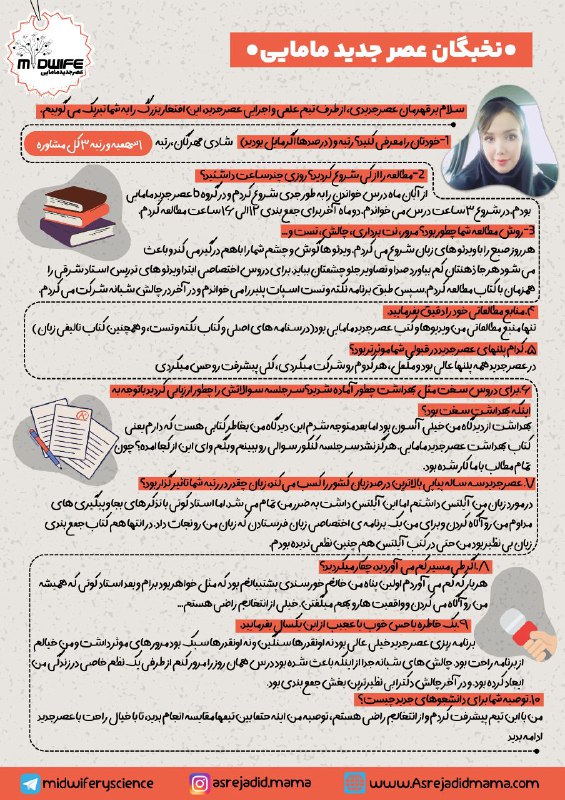 MIDWIFE
عصر جدید مامایی
•نخبگان عصر جدید مامایی•
سلام بر قهرمان عصر جدیدی، از طرف تیم علمی و اجرایی عصر جدید، این افتخار بزرگ را به شما تبریک می گوییم.
1-خودتان را معرفی کنید؟ رتبه و (درصدها اگر مایل بودید) شادی مهرگان،رتبه ۳۱سهمیه و رتبه ۳ کل مشاوره
2-مطالعه را از کی شروع کردید؟ روزی چند ساعت داشتید؟
از آبان ماه درس خواندن را به طور جدی شروع کردم و در گروه b عصر جدید مامایی
بودم.در شروع ۳ ساعت درس می خواندم. دو ماه آخر برای جمع بندی ۱۲الی ۱۶ ساعت مطالعه کردم.
3-روش مطالعه شما چطور بود؟ مرور، نت برداری، چالش، تست و...
هر روز صبح را با ویدئو های زبان شروع می کردم. ویدئو ها گوش و چشم شما را با هم درگیر می کند و باعث
می شود هر جا ذهنتان کم بیاورد صدا و تصاویر جلو چشمتان بیاید. برای دروس اختصاصی ابتدا ویدئو های تدریس استاد شرقی را
همزمان با کتاب مطالعه کردم.سپس طبق برنامه نکته و تست اسپات پلیر را می خواندم و در آخر در چالش شبانه شرکت می کردم.
۴.منابع مطالعاتی خود را دقیق بفرمایید.
تنها منبع مطالعاتی من ویدیوها و کتب عصر جدید مامایی بود(درسنامه های اصلی و کتاب نکته و تست، و همچنین کتاب تالیفی زبان )
۵.کدام پلنهای عصر جدید در قبولی شما موثرتر بود؟
در عصر جدید همه پلنها عالی بود و مکمل، هر کدوم رو شرکت میکردی، کلی پیشرفت رو حس میکردی
۶.برای دروس سخت مثل بهداشت چطور آماده شدید؟سر جلسه سوالاتش را چطور ارزیابی کردید با توجه به
اینکه بهداشت سخت بود؟
بهداشت از دیدگاه من خیلی آسون بود اما بعد متوجه شدم این دیدگاه من بخاطر کتابی هست که دارم یعنی
کتاب بهداشت عصر جدید مامایی. هرگز نشد سر جلسه کنکور سوالی رو ببینم و بگم وای این از کجا اومده؟ چون
تمام مطالب با ما کار شده بود.
۷.عصر جدید سه ساله پیاپی بالاترین درصد زبان کشور را کسب می کند، زبان چقدر در رتبه شما تاثیر گذار بود؟
در مورد زبان من آیلتس داشتم اما این آیلتس داشت به ضرر من تمام می شد. اما استاد کوتی با تذکر های بجا و پیگیری های
مداوم من رو آگاه کردن و برای من یک برنامه ی اختصاصی زبان فرستادن که زبان من رو نجات داد. در انتها هم کتاب جمع بندی
زبان بی نظیر بود من حتی در کتب آیلتس هم چنین نظمی ندیده بودم.
۸.اگر طی مسیر کم می آوردید، چکار میکردید؟
هر بار که کم می آوردم اولین پناه من خانم خورسندی پشتیبانم بود که مثل خواهر بود برام و بعد استاد کوتی که همیشه
من رو آگاه می کردن و واقعیت ها رو بهم میگفتن. خیلی از انتخابم راضی هستم...
۹.یک خاطره یا حس خوب یا عجیب از این یکسال بفرمایید.
برنامه ریزی عصر جدید خیلی عالی بود نه اونقدر ها سنگین و نه اونقدر ها سبک بود مرور های موثر داشت و من خیالم
از برنامه راحت بود. چالش های شبانه جدا از اینکه باعث شده بود درس همان روز را مرور کنم از طرفی یک نظم خاصی در زندگی من
ایجاد کرده بود. و در آخر چالش دکترایی نظیرترین بخش جمع بندی بود.
۱۰.توصیه شما برای دانشجوهای جدید چیست؟
من با این تیم پیشرفت کردم و از انتخابم راضی هستم، توصیه من اینه حتما بین تیمها مقایسه انجام بدید، تا با خیال راحت با عصر جدید
ادامه بدید
midwiferyscience
asrejadid.mama
www.Asrejadidmama.com